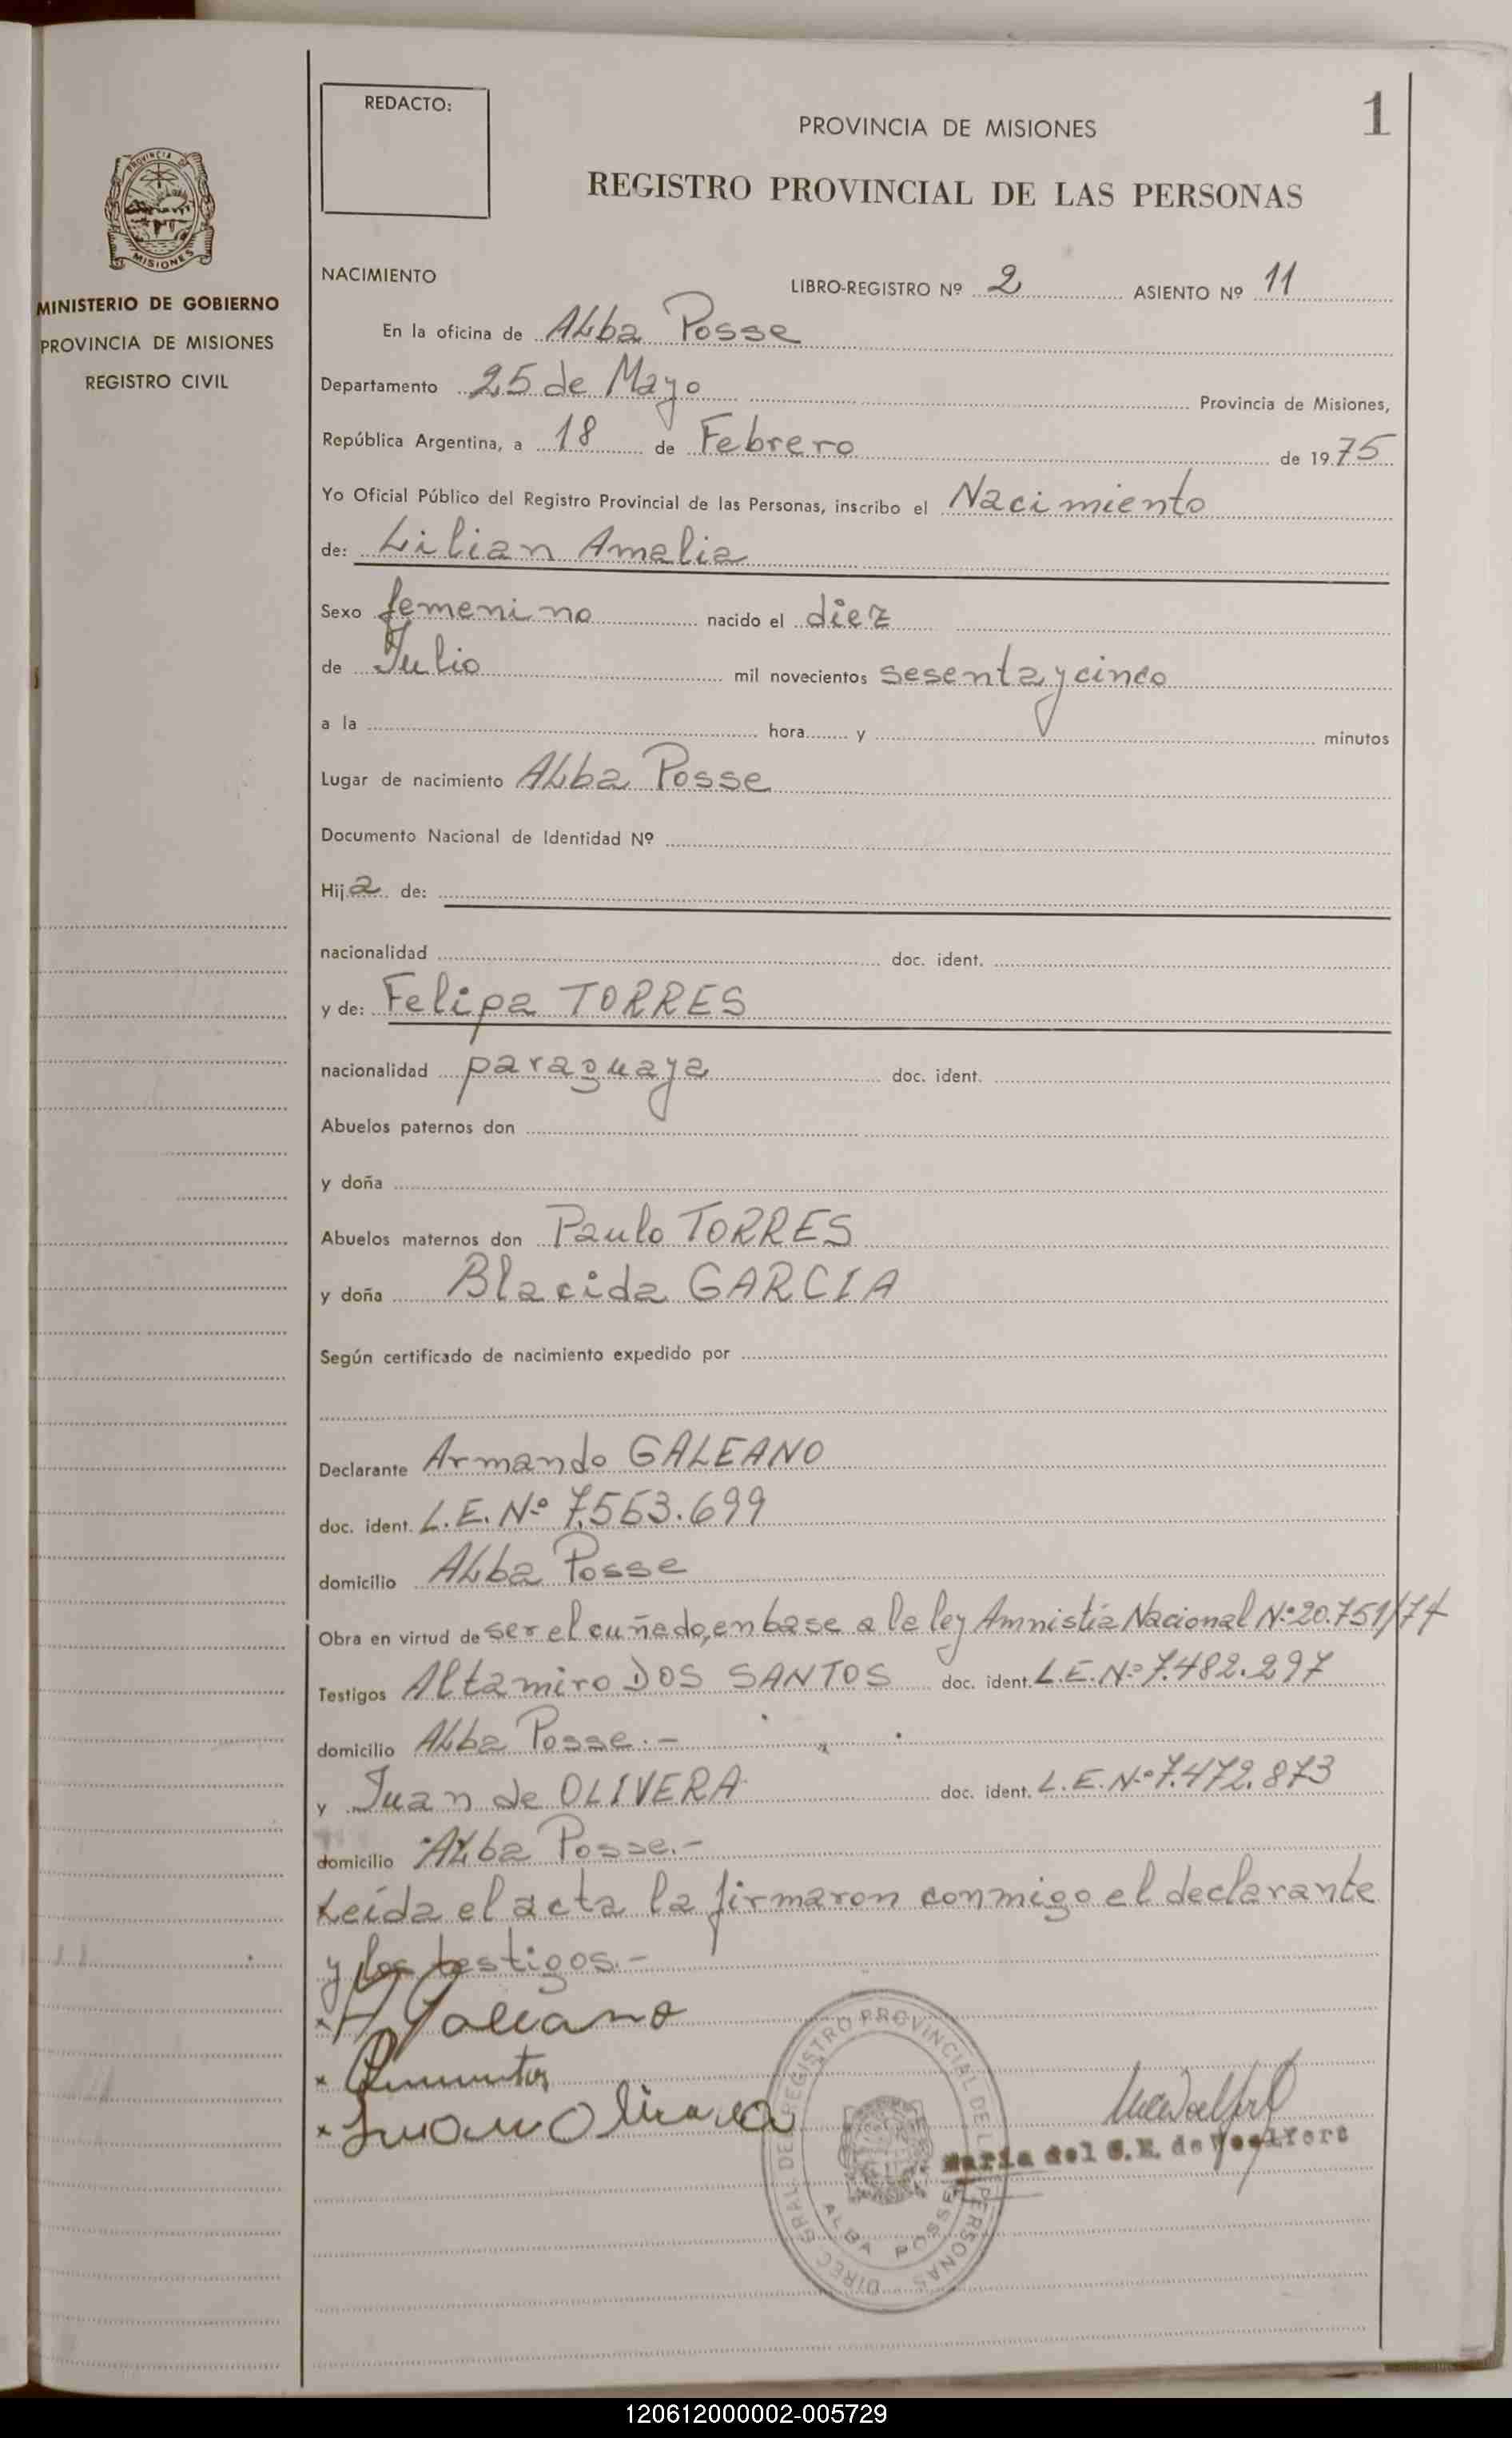 REDACTO:
PROVINCIA DE MISIONES
1
REGISTRO PROVINCIAL DE LAS PERSONAS
PROVINCIA DE
MISIONES
MINISTERIO DE GOBIERNO
PROVINCIA DE MISIONES
REGISTRO CIVIL
NACIMIENTO
LIBRO-REGISTRO Nº 2 ASIENTO Nº 11
En la oficina de Alba Posse
Departamento 25 de Mayo Provincia de Misiones,
República Argentina, a 18 de Febrero de 1975
Yo Oficial Público del Registro Provincial de las Personas, inscribo el Nacimiento
de: Lilian Amalia
Sexo femenino nacido el diez
de Julio mil novecientos sesenta y cinco
a la hora y minutos
Lugar de nacimiento Alba Posse
Documento Nacional de Identidad Nº
Hija de:
nacionalidad doc. ident.
y de: Felipa TORRES
nacionalidad paraguaya doc. ident.
Abuelos paternos don
y doña
Abuelos maternos don Paulo TORRES
y doña Blacida GARCIA
Según certificado de nacimiento expedido por
Declarante Armando GALEANO
doc. ident. L.E. Nº 7.563.699
domicilio Alba Posse
Obra en virtud de ser el cuñado, en base a la ley Amnistia Nacional Nº 20.751/74
Testigos Altamiro DOS SANTOS doc. ident. L.E. Nº 7.482.297
domicilio Alba Posse.-
y Juan de OLIVERA doc. ident. L.E. Nº 7.472.873
domicilio Alba Posse.-
Leída el acta la firmaron conmigo el declarante
y los testigos.-
A Galeano
Juan Olivera
DIREC. GRAL. DE REGISTRO PROVINCIAL DE LAS PERSONAS
ALBA POSSE
Maria del C. E. de Woelfert
120612000002-005729